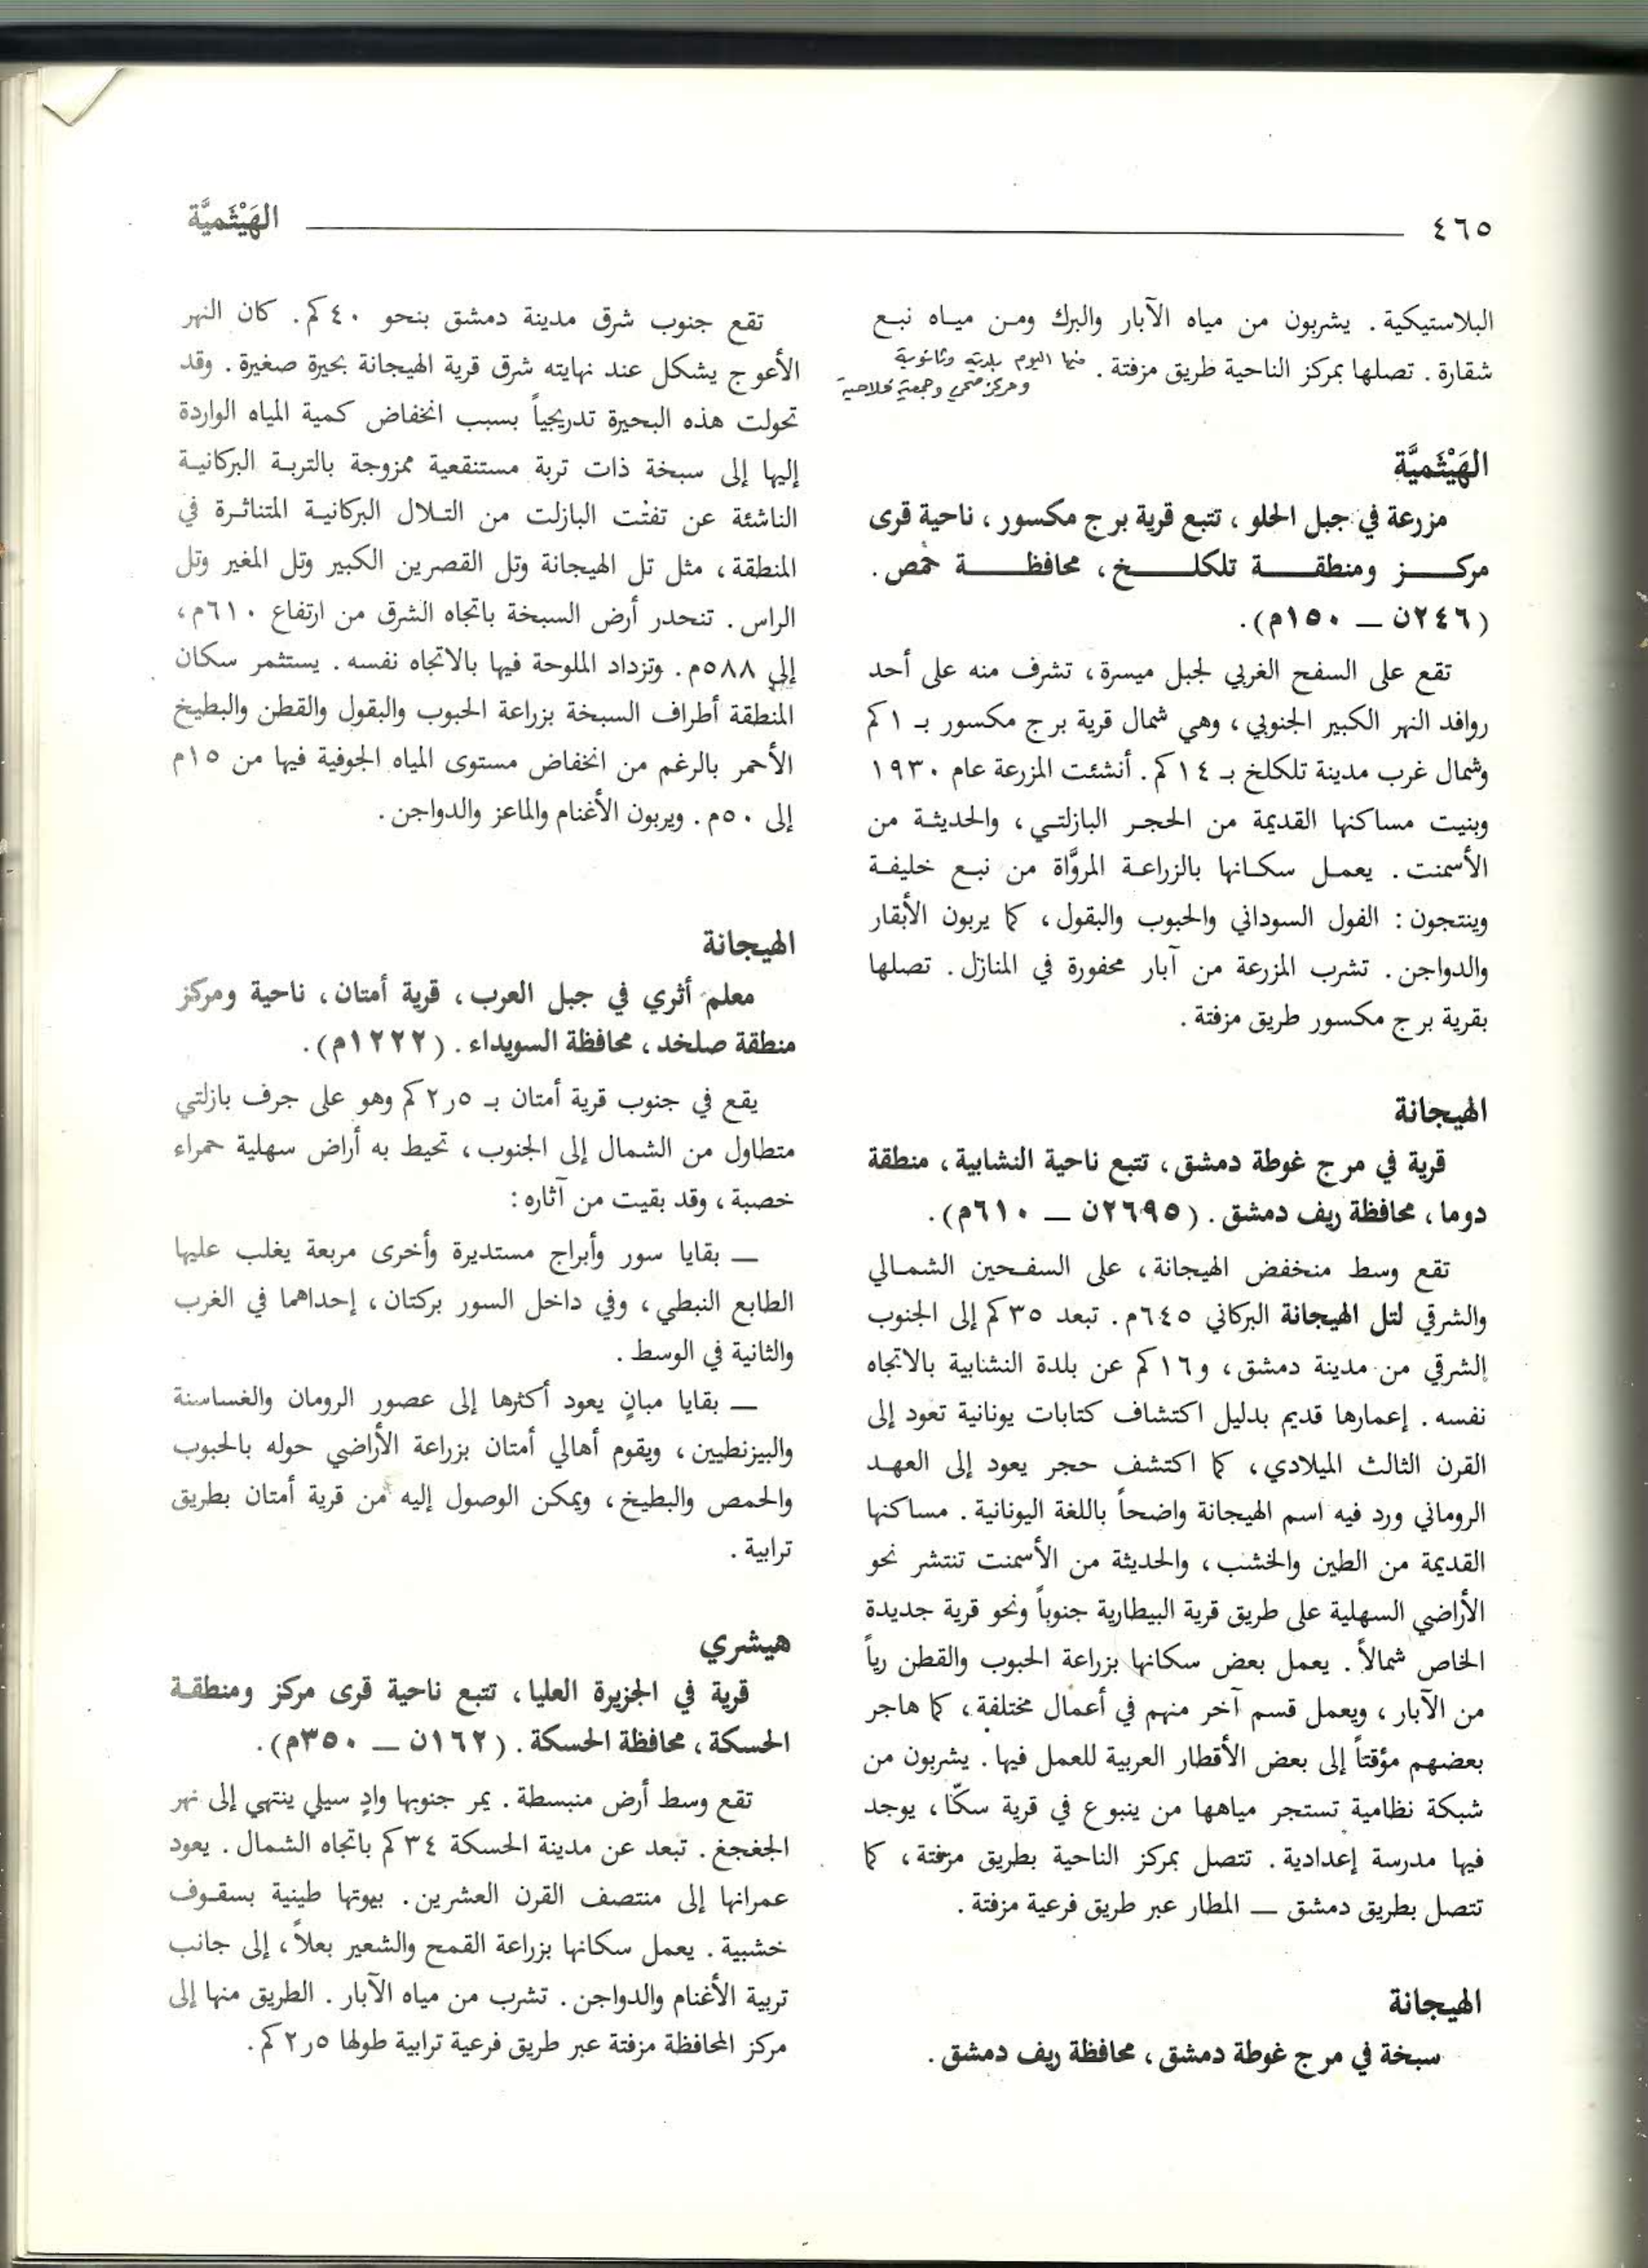 ٤٦٥
الهَيْثَميَّة
البلاستيكية. يشربون من مياه الآبار والبرك ومن مياه نبع
شقارة. تصلها بمركز الناحية طريق مزفتة.
اليوم بلدية وثانوية
ومركز صحي وجمعية فلاحية
الهَيْثَميَّة
مزرعة في جبل الحلو، تتبع قرية برج مكسور، ناحية قرى
مركز ومنطقة تلكلخ، محافظة حمص.
(٢٤٦ن — ١٥٠م).
تقع على السفح الغربي لجبل ميسرة، تشرف منه على أحد
روافد النهر الكبير الجنوبي، وهي شمال قرية برج مكسور بـ ١كم
وشمال غرب مدينة تلكلخ بـ ١٤كم. أنشئت المزرعة عام ١٩٣٠
وبنيت مساكنها القديمة من الحجر البازلتي، والحديثة من
الأسمنت. يعمل سكانها بالزراعة المروَّاة من نبع خليفة
وينتجون: الفول السوداني والحبوب والبقول، كما يربون الأبقار
والدواجن. تشرب المزرعة من آبار محفورة في المنازل. تصلها
بقرية برج مكسور طريق مزفتة.
الهيجانة
قرية في مرج غوطة دمشق، تتبع ناحية النشابية، منطقة
دوما، محافظة ريف دمشق. (٢٦٩٥ن — ٦١٠م).
تقع وسط منخفض الهيجانة، على السفحين الشمالي
والشرقي لتل الهيجانة البركاني ٦٤٥م. تبعد ٣٥كم إلى الجنوب
الشرقي من مدينة دمشق، و١٦كم عن بلدة النشابية بالاتجاه
نفسه. إعمارها قديم بدليل اكتشاف كتابات يونانية تعود إلى
القرن الثالث الميلادي، كما اكتشف حجر يعود إلى العهد
الروماني ورد فيه اسم الهيجانة واضحاً باللغة اليونانية. مساكنها
القديمة من الطين والخشب، والحديثة من الأسمنت تنتشر نحو
الأراضي السهلية على طريق قرية البيطارية جنوباً ونحو قرية جديدة
الخاص شمالاً. يعمل بعض سكانها بزراعة الحبوب والقطن رياً
من الآبار، ويعمل قسم آخر منهم في أعمال مختلفة، كما هاجر
بعضهم مؤقتاً إلى بعض الأقطار العربية للعمل فيها. يشربون من
شبكة نظامية تستجر مياهها من ينبوع في قرية سكّا، يوجد
فيها مدرسة إعدادية. تتصل بمركز الناحية بطريق مزفتة، كما
تتصل بطريق دمشق — المطار عبر طريق فرعية مزفتة.
الهيجانة
سبخة في مرج غوطة دمشق، محافظة ريف دمشق.
تقع جنوب شرق مدينة دمشق بنحو ٤٠كم. كان النهر
الأعوج يشكل عند نهايته شرق قرية الهيجانة بحيرة صغيرة. وقد
تحولت هذه البحيرة تدريجياً بسبب انخفاض كمية المياه الواردة
إليها إلى سبخة ذات تربة مستنقعية ممزوجة بالتربة البركانية
الناشئة عن تفتت البازلت من التلال البركانية المتناثرة في
المنطقة، مثل تل الهيجانة وتل القصرين الكبير وتل المغير وتل
الراس. تنحدر أرض السبخة باتجاه الشرق من ارتفاع ٦١٠م،
إلى ٥٨٨م. وتزداد الملوحة فيها بالاتجاه نفسه. يستثمر سكان
المنطقة أطراف السبخة بزراعة الحبوب والبقول والقطن والبطيخ
الأحمر بالرغم من انخفاض مستوى المياه الجوفية فيها من ١٥م
إلى ٥٠م. ويربون الأغنام والماعز والدواجن.
الهيجانة
معلم أثري في جبل العرب، قرية أمتان، ناحية ومركز
منطقة صلخد، محافظة السويداء. (١٢٢٢م).
يقع في جنوب قرية أمتان بـ ٢٫٥كم وهو على جرف بازلتي
متطاول من الشمال إلى الجنوب، تحيط به أراض سهلية حمراء
خصبة، وقد بقيت من آثاره:
— بقايا سور وأبراج مستديرة وأخرى مربعة يغلب عليها
الطابع النبطي، وفي داخل السور بركتان، إحداهما في الغرب
والثانية في الوسط.
— بقايا مبانٍ يعود أكثرها إلى عصور الرومان والغساسنة
والبيزنطيين، ويقوم أهالي أمتان بزراعة الأراضي حوله بالحبوب
والحمص والبطيخ، ويمكن الوصول إليه من قرية أمتان بطريق
ترابية.
هيشري
قرية في الجزيرة العليا، تتبع ناحية قرى مركز ومنطقة
الحسكة، محافظة الحسكة. (١٦٢ن — ٣٥٠م).
تقع وسط أرض منبسطة. يمر جنوبها وادٍ سيلي ينتهي إلى نهر
الجغجغ. تبعد عن مدينة الحسكة ٣٤كم باتجاه الشمال. يعود
عمرانها إلى منتصف القرن العشرين. بيوتها طينية بسقوف
خشبية. يعمل سكانها بزراعة القمح والشعير بعلاً، إلى جانب
تربية الأغنام والدواجن. تشرب من مياه الآبار. الطريق منها إلى
مركز المحافظة مزفتة عبر طريق فرعية ترابية طولها ٢٫٥كم.